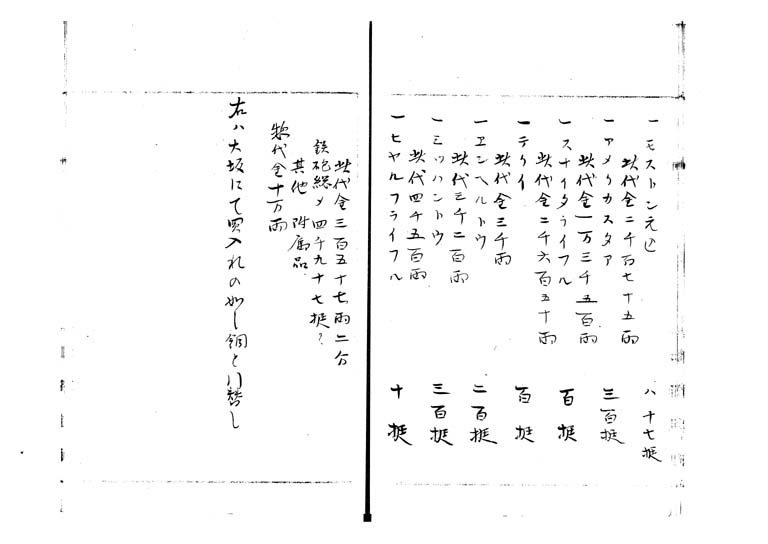 一モストン元込 八十七挺
此代金二千百七十五両
一アメリカスタア 三百挺
此代金一万三千五百両
一スナイタライフル 百挺
此代金二千六百五十両
一テケイ 百挺
此代金三千両
一ヱンヘルトウ 二百挺
此代三千二百両
一ミツハントウ 三百挺
此代四千五百両
一ヒヤルフライフル 十挺
此代金三百五十七両二分
鉄砲総〆四千九十七挺？
其他附属品
惣代金十万両
右ハ大坂にて買入れの如し銅と引替し